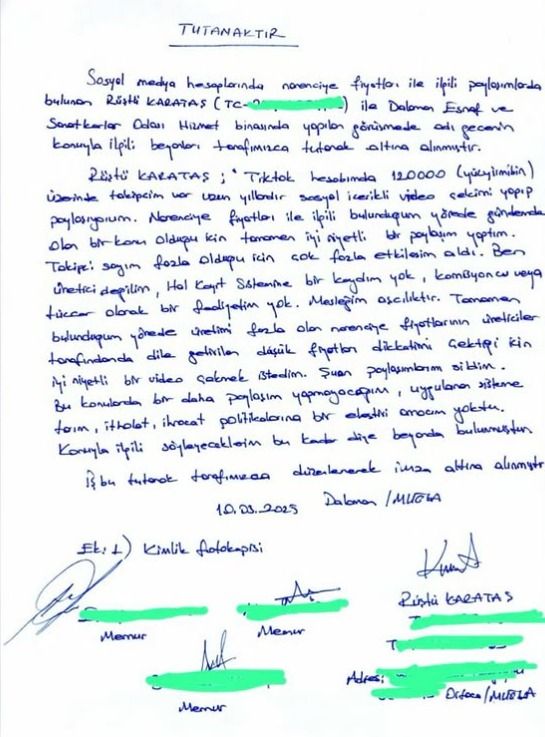 TUTANAKTIR
Sosyal medya hesaplarında narenciye fiyatları ile ilgili paylaşımlarda
bulunan Rüştü KARATAŞ (TC- ) ile Dalaman Esnaf ve
Sanatkarlar Odası Hizmet binasında yapılan görüşmede adı geçenin
konuyla ilgili beyanları tarafımızca tutanak altına alınmıştır.
Rüştü KARATAŞ ; " Tiktok hesabımda 120000 (yüzyirmibin)
üzerinde takipçim var uzun yıllardır sosyal içerikli video çekimi yapıp
paylaşıyorum. Narenciye fiyatları ile ilgili bulunduğum yörede gündemde
olan bir konu olduğu için tamamen iyi niyetli bir paylaşım yaptım.
Takipçi sayım fazla olduğu için çok fazla etkileşim aldı. Ben
üretici değilim, Hal Kayıt Sistemine bir kaydım yok, komisyoncu veya
tüccar olarak bir faaliyetim yok. Mesleğim aşçılıktır. Tamamen
bulunduğum yörede üretimi fazla olan narenciye fiyatlarının üreticiler
tarafındanda dile getirilen düşük fiyatları dikkatimi çektiği için
iyi niyetli bir video çekmek istedim. Şuan paylaşımlarım sildim.
Bu konularda bir daha paylaşım yapmayacağım, uygulanan sisteme
tarım, ithalat, ihracat politikalarına bir eleştiri amacım yoktu.
Konuyla ilgili söyleyeceklerim bu kadar diye beyanda bulunmuştur.
İş bu tutanak tarafımızca düzenlenerek imza altına alınmıştır
10.03.2025 Dalaman /MUĞLA
Ek: 1) Kimlik fotokopisi
Rüştü KARATAŞ
Memur
Memur
Adres:
Ortaca/MUĞLA
Memur